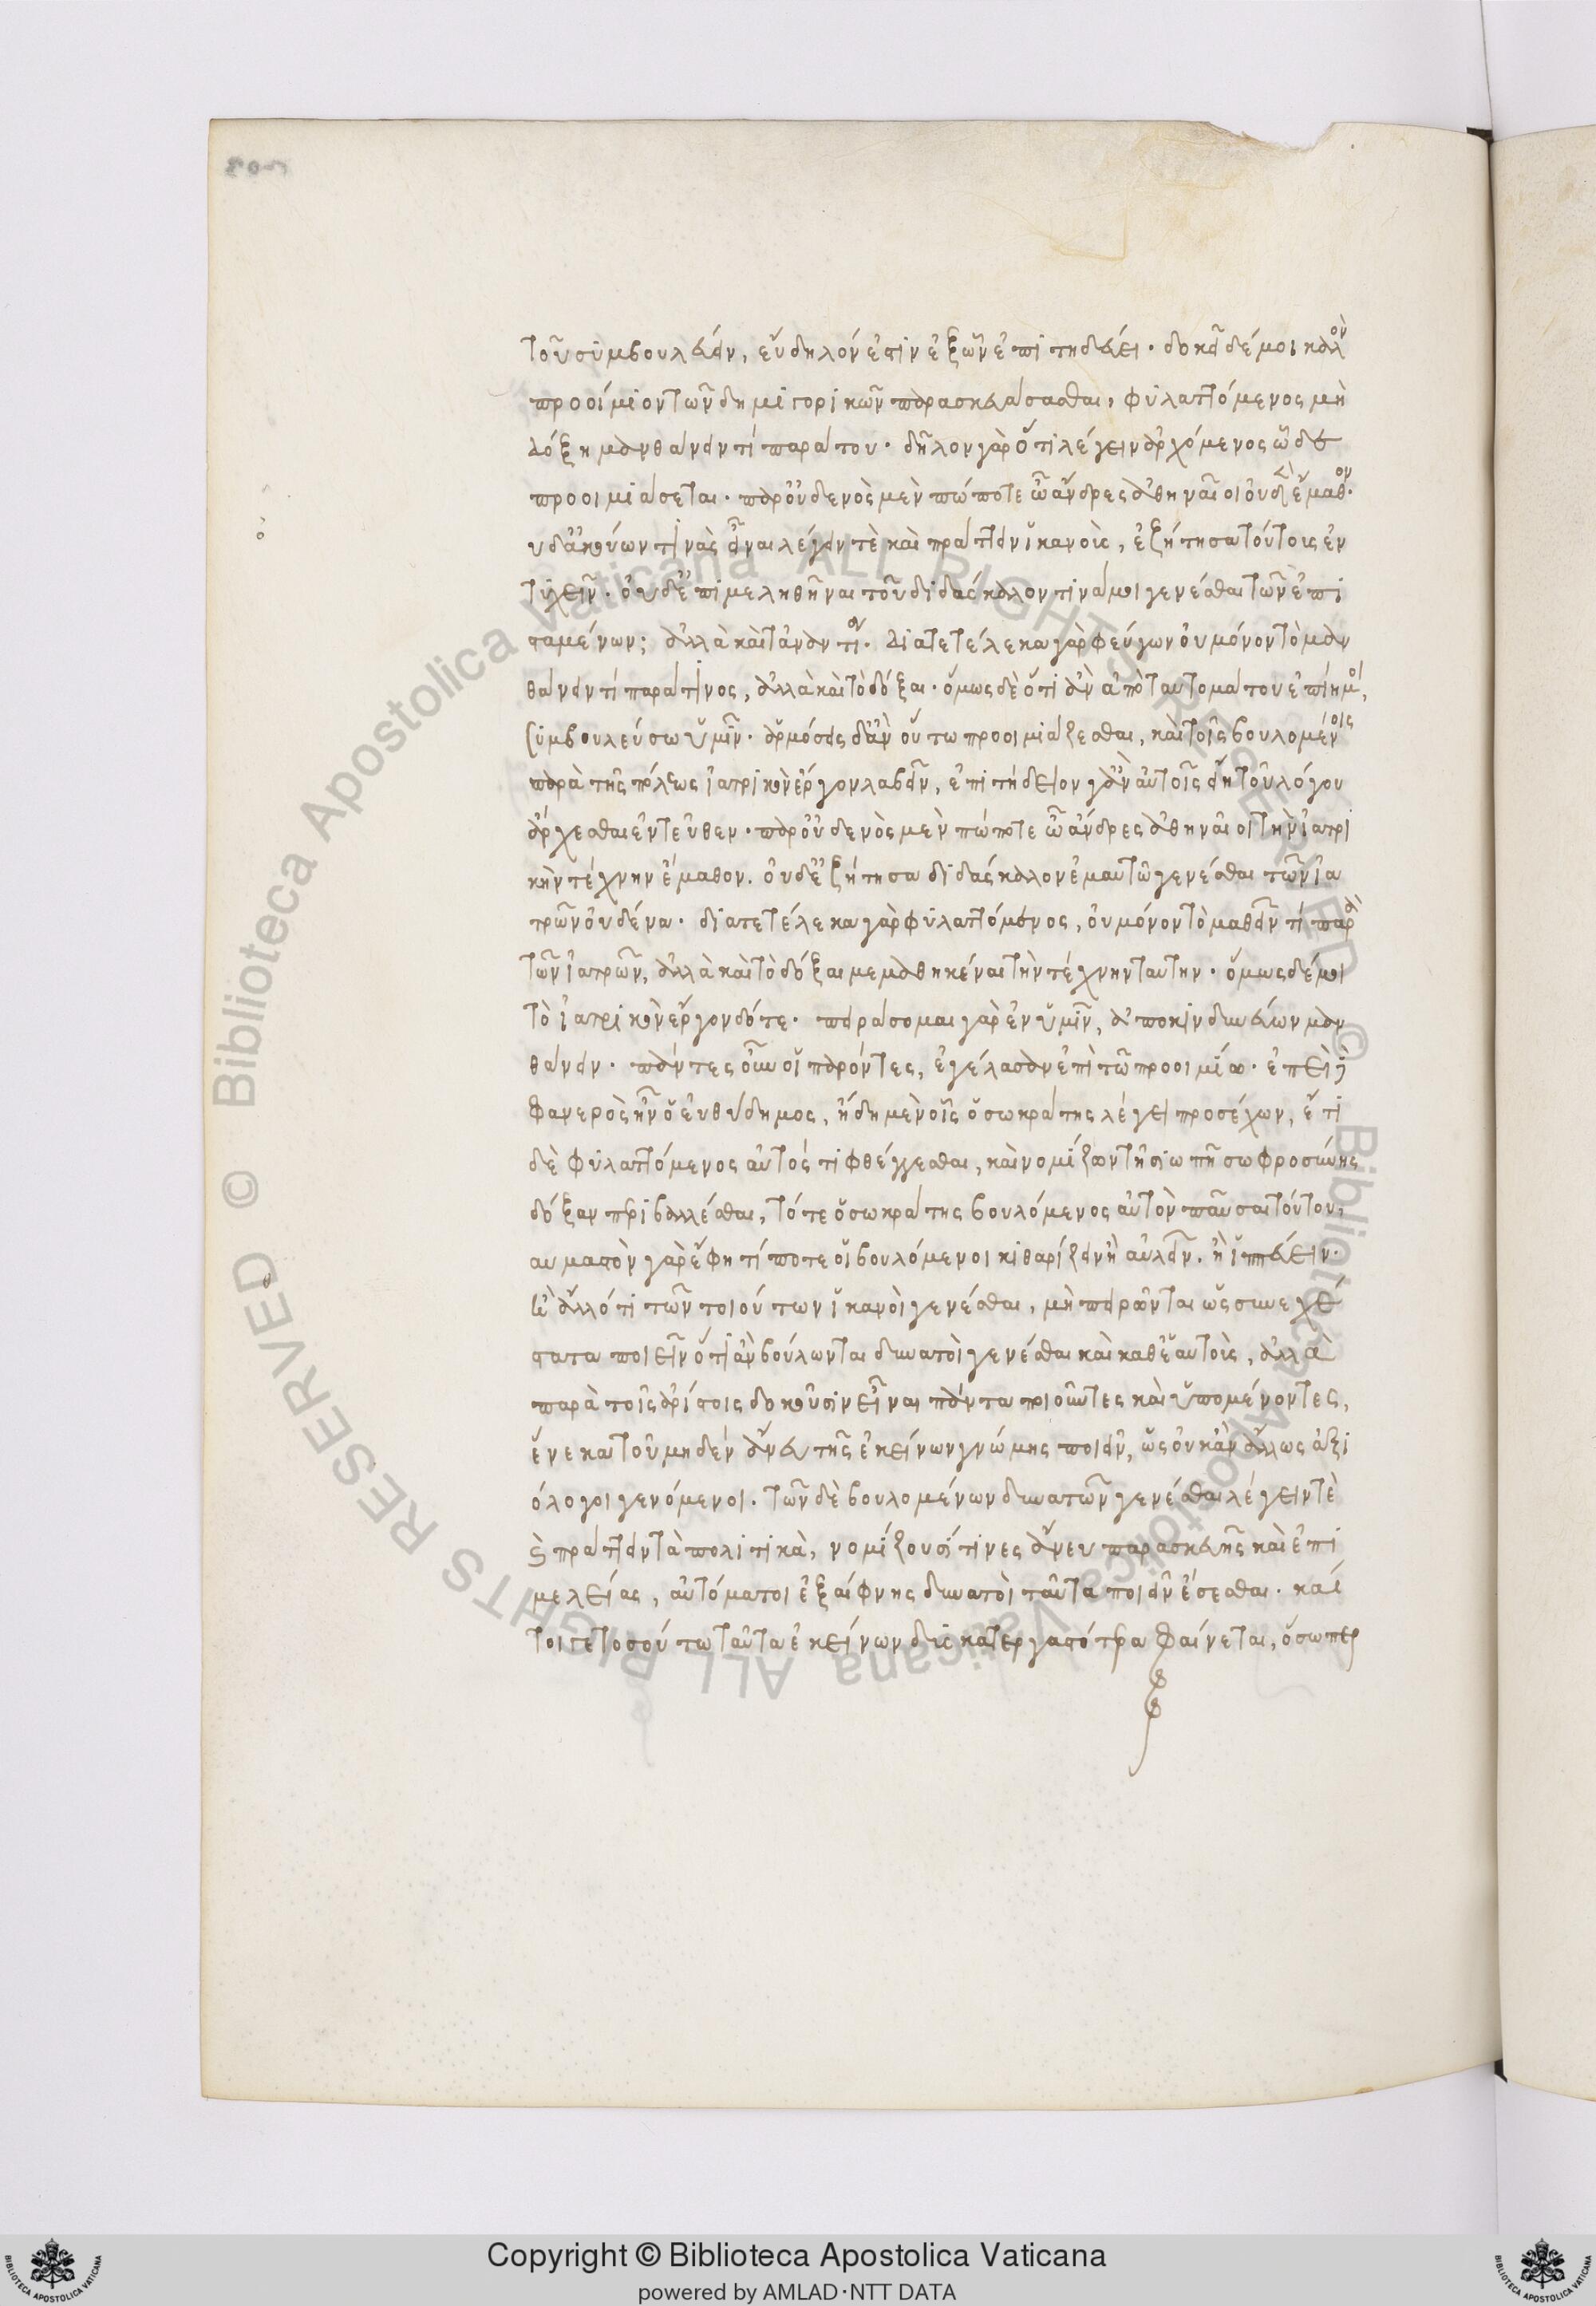 τοῦ συμβουλεύειν, εὔδηλόν ἐστιν ἐξ ὧν ἐπιτηδεύει. δοκεῖ δέ μοι καλὸν
προοίμιον τῶν δημιγορικῶν παρασκευάσασθαι, φυλαττόμενος μὴ
δόξῃ μανθάνειν τί παρά του. δῆλον γὰρ ὅτι λέγειν ἀρχόμενος ὧδε
προοιμιάσεται. παρ' οὐδενὸς μὲν πώποτε ὦ ἄνδρες ἀθηναῖοι οὐδὲν ἔμαθον.
οὐδ' ἀκούων τινὰς εἶναι λέγειν τὲ καὶ πράττειν ἱκανοὺς, ἐζήτησα τούτοις ἐν
τυχεῖν. οὐδ' ἐπιμεληθῆναι τοῦ διδάσκαλον τινά μοι γενέσθαι τῶν ἐπι
σταμένων; ἀλλὰ καὶ τἀναντί. διατετέλεκα γὰρ φεύγων οὐ μόνον τὸ μαν
θάνειν τί παρά τινος, ἀλλὰ καὶ τὸ δόξαι. ὅμως δὲ ὅτι ἂν ἀπὸ ταυτομάτου ἐπίῃ μοί,
συμβουλεύσω ὑμῖν. ἁρμόσειε δ' ἂν οὕτω προοιμιάζεσθαι, καὶ τοῖς βουλομένοις
παρὰ τῆς πόλεως ἰατρικὸν ἔργον λαβεῖν, ἐπιτήδειον γ' ἂν αὐτοῖς εἴη τοῦ λόγου
ἄρχεσθαι ἐντεῦθεν. παρ' οὐδενὸς μὲν πώποτε ὦ ἄνδρες ἀθηναῖοι τὴν ἰατρι
κὴν τέχνην ἔμαθον. οὐδ' ἐζήτησα διδάσκαλον ἐμαυτῷ γενέσθαι τῶν ἰα
τρῶν οὐδένα. διατετέλεκα γὰρ φυλαττόμενος, οὐ μόνον τὸ μαθεῖν τί παρὰ
τῶν ἰατρῶν, ἀλλὰ καὶ τὸ δόξαι μεμαθηκέναι τὴν τέχνην ταύτην. ὅμως δέ μοι
τὸ ἰατρικὸν ἔργον δότε. πειράσομαι γὰρ ἐν ὑμῖν, ἀποκινδυνεύων μαν
θάνειν. πάντες οὖν οἱ παρόντες, ἐγέλασαν ἐπὶ τῷ προοιμίῳ. ἐπεὶ
φανερὸς ἦν ὁ εὐθύδημος, ἤδη μὲν οἷς ὁ σωκράτης λέγει προσέχων, ἔτι
δὲ φυλαττόμενος αὐτός τι φθέγγεσθαι, καὶ νομίζων τῇ σιωπῇ σωφροσύνης
δόξαν περιβαλλέσθαι, τότε ὁ σωκράτης βουλόμενος αὐτὸν παῦσαι τούτου,
αυμαστὸν γὰρ ἔφη τί ποτε οἱ βουλόμενοι κιθαρίζειν ἢ αὐλεῖν. ἢ ἱππεύειν.
ἢ ἀλλό τι τῶν τοιούτων ἱκανοὶ γενέσθαι, μὴ πειρῶνται ὡς συνεχέ
στατα ποιεῖν ὅ τι ἂν βούλωνται δυνατοὶ γενέσθαι καὶ καθ' ἑαυτοὺς, ἀλλὰ
παρὰ τοῖς ἀρίστοις δοκοῦσιν εἶναι πάντα ποιοῦντες καὶ ὑπομένοντες,
ἕνεκα τοῦ μηδὲν ἄνευ τῆς ἐκείνων γνώμης ποιεῖν, ὡς οὐκ ἂν ἄλλως ἀξι
όλογοι γενόμενοι. τῶν δὲ βουλομένων δυνατῶν γενέσθαι λέγειν τὲ
καὶ πράττειν τὰ πολιτικὰ, νομίζουσί τινες ἄνευ παρασκευῆς καὶ ἐπι
μελείας, αὐτόματοι ἐξαίφνης δυνατοὶ ταῦτα ποιεῖν ἔσεσθαι. καί
τοι γε τοσούτω ταῦτα ἐκείνων δυσκατεργαστότερα φαίνεται, ὅσωπερ
© Biblioteca Apostolica Vaticana ALL RIGHTS RESERVED
© Biblioteca Apostolica Vaticana ALL RIGHTS RESERVED
Copyright © Biblioteca Apostolica Vaticana
powered by AMLAD·NTT DATA
BIBLIOTECA APOSTOLICA VATICANA
BIBLIOTECA APOSTOLICA VATICANA